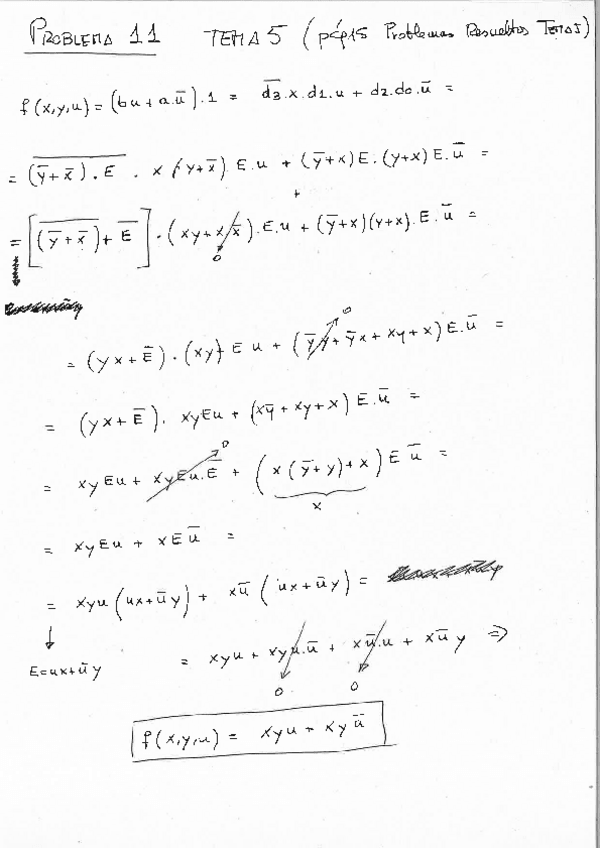 PROBLEMA 11 TEMA 5 (pág 15 Problemas Resueltos Tema 5)
f(x,y,u) = (bu + a.u̅).1 = d̅3̅.x.d1.u + d2.d0.u̅ =
= \overline{(y̅+x̅).E} . x (y+x̅) E.u + (y̅+x)E.(y+x)E.u̅ =
+
= [\overline{(y̅+x̅)} + E̅] . (xy + x x̅).E.u + (y̅+x)(y+x).E.u̅ =
0
0
= (yx + E̅).(xy) E u + (y̅y + y̅x + xy + x) E.u̅ =
= (yx + E̅). xyEu + (xy̅ + xy + x) E.u̅ =
0
= xyEu + xyEu.E̅ + (x(y̅+y)+x) E u̅ =
x
= xyEu + xEu̅ =
= xyu(ux + u̅y) + xu̅(ux + u̅y) =
E = ux + u̅y
= xyu + xyu.u̅ + xu̅.u + xu̅y ⇒
0 0
f(x,y,u) = xyu + xyu̅